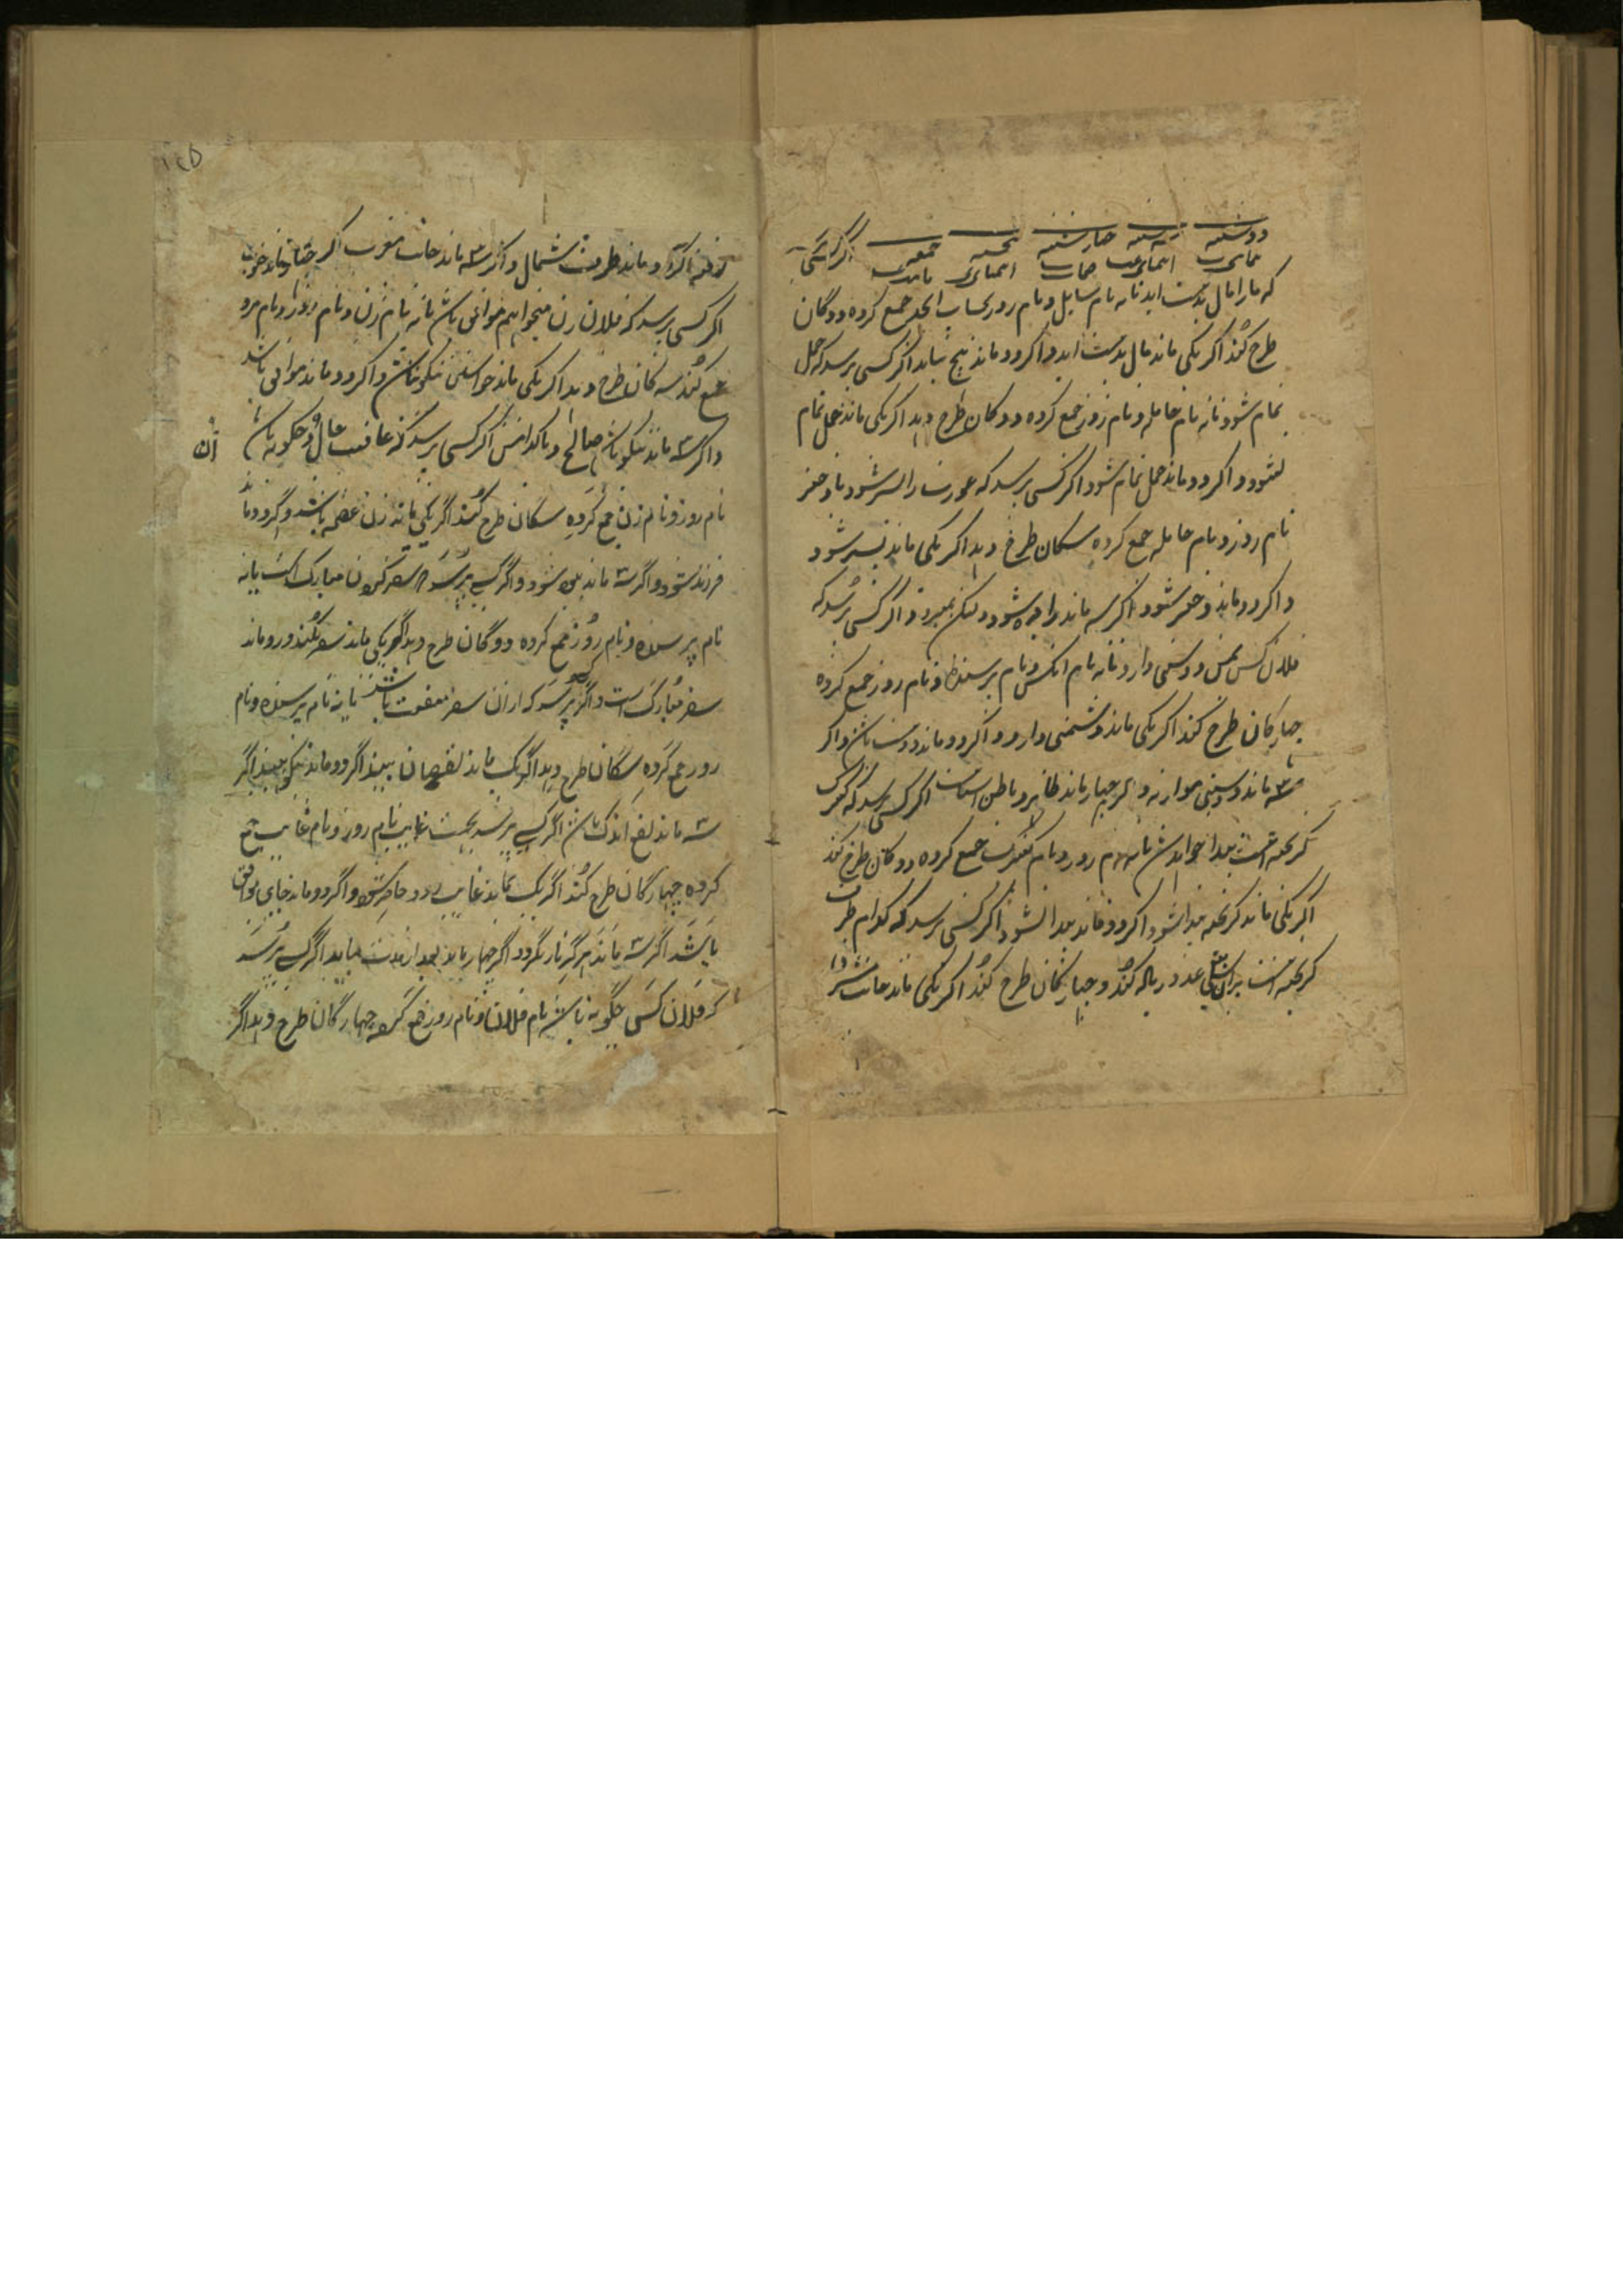 دوشنبه سه شنبه چهارشنبه پنجشنبه جمعه اگر کسی
که ما را مال بدست اید یا نه نام سایل و نام روز بحساب ابجد جمع کرده دوگان
طرح کند اگر یکی ماند مال بدست اید و اگر دو ماند هیچ نیاید اگر کسی پرسد که حمل
تمام شود یا نه نام حامله و نام روز جمع کرده دوگان طرح دهد اگر یکی ماند حمل تمام
نشود و اگر دو ماند حمل تمام شود اگر کسی پرسد که عورت را پسر شود یا دختر
نام روز و نام حامله جمع کرده سگان طرح دهد اگر یکی ماند پسر شود
و اگر دو ماند دختر شود اگر سه ماند شود ولیکن بمیرد و اگر کسی پرسد که
فلان کس بمن دوستی دارد یا نه نام انکس و نام پرسنده و نام روز جمع کرده
چهارگان طرح کند اگر یکی ماند دشمنی دارد و اگر دو ماند دوست باشد و اگر
سه ماند دوستی هموار نه و اگر چهار ماند ظاهر و باطن است اگر کسی پرسد که
گریخته است پیدا خواهد شد یا نه نام روز و نام جمع کرده دوگان طرح کند
اگر یکی ماند گریخته پیدا شود اگر دو ماند پیدا نشود اگر کسی پرسد که کدام طرف
گریخته است بران عدد زیاله کند و چهارگان طرح کند اگر یکی ماند جانب مشرق
۱۲۵
رفته اگر دو ماند طرف شمال و اگر سه ماند جانب مغرب اگر چهار ماند جنوب
اگر کسی پرسد که فلان زن میخواهم موافق باشد یا نه نام زن و نام روز و نام مرد
جمع کند سه گان طرح دهد اگر یکی ماند خواستن نیکو نباشد و اگر دو ماند موافق باشد
و اگر سه ماند نیکو باشد صالح و پاکدامنش اگر کسی پرسد که عاقبت حال و چگونه باشد آن
نام روز و نام زن جمع کرده سگان طرح کند اگر یکی ماند زن عقیمه باشد و گر دو ماند
فرزند شود و اگر سه ماند شود و اگر کسی پرسد سفر کردن مبارک است یا نه
نام پرسنده و نام روز جمع کرده دوگان طرح دهد اگر یکی ماند سفر نکند و دو ماند
سفر مبارک است و اگر کسی پرسد که از ان سفر منفعت باشد یا نه نام پرسنده و نام
روز جمع کرده سگان طرح دهد اگر یک ماند نقصان بیند اگر دو ماند نیکو بیند اگر
سه ماند نفع اندک باشد اگر کسی پرسد بجهت غایب نام روز و نام غایب جمع
کرده چهارگان طرح کند اگر یک بماند غایب زود حاضر شود و اگر دو ماند جای موافق
باشد اگر سه ماند هرگز باز نگردد اگر چهار ماند بعد از مدت بیاید اگر کسی پرسد
که فلان کس چگونه باشد نام فلان و نام روز جمع کرده چهارگان طرح دهد اگر